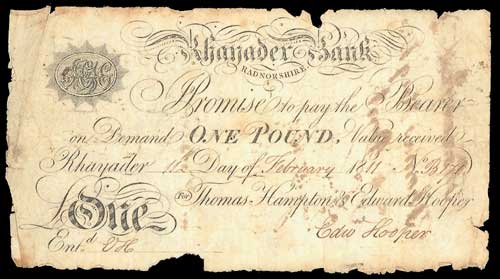 Rhayader Bank
RADNORSHIRE
I Promise to pay the Bearer
on Demand ONE POUND, Value received
Rhayader 11th Day of February 1811 No.
For Thomas Hampton & Edward Hooper
£One
Edwd Hooper
Entd EH